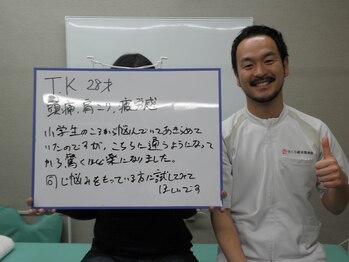 T.K 28才
頭痛、肩こり、疲労感
小学生のころから悩んでいてあきらめて
いたのですが、こちらに通うようになって
から驚くほど楽になりました。
同じ悩みをもっている方に試してみて
ほしいです